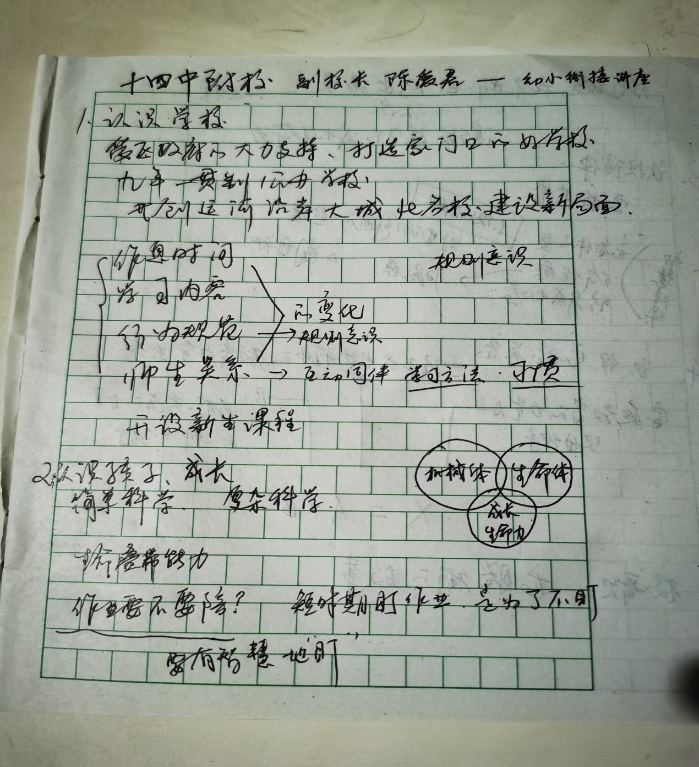 十四中附校 副校长 陈 君 — 幼小衔接讲座
1. 认识学校
政府的大力支持、打造家门口的好学校
九年一贯制公办学校
共创运河沿岸大城北名校建设新局面.
作息时间 规则意识
学习内容
的变化
行为规范 → 规则意识
师生关系 → 互动同伴 学习方法 · 习惯
开设新生课程
2. 认识孩子、成长
简单科学、复杂科学.
机械体 生命体
成长
生命力
生命 能力
作业要不要陪? 短时期盯作业、是为了不盯
要有智慧地"盯"